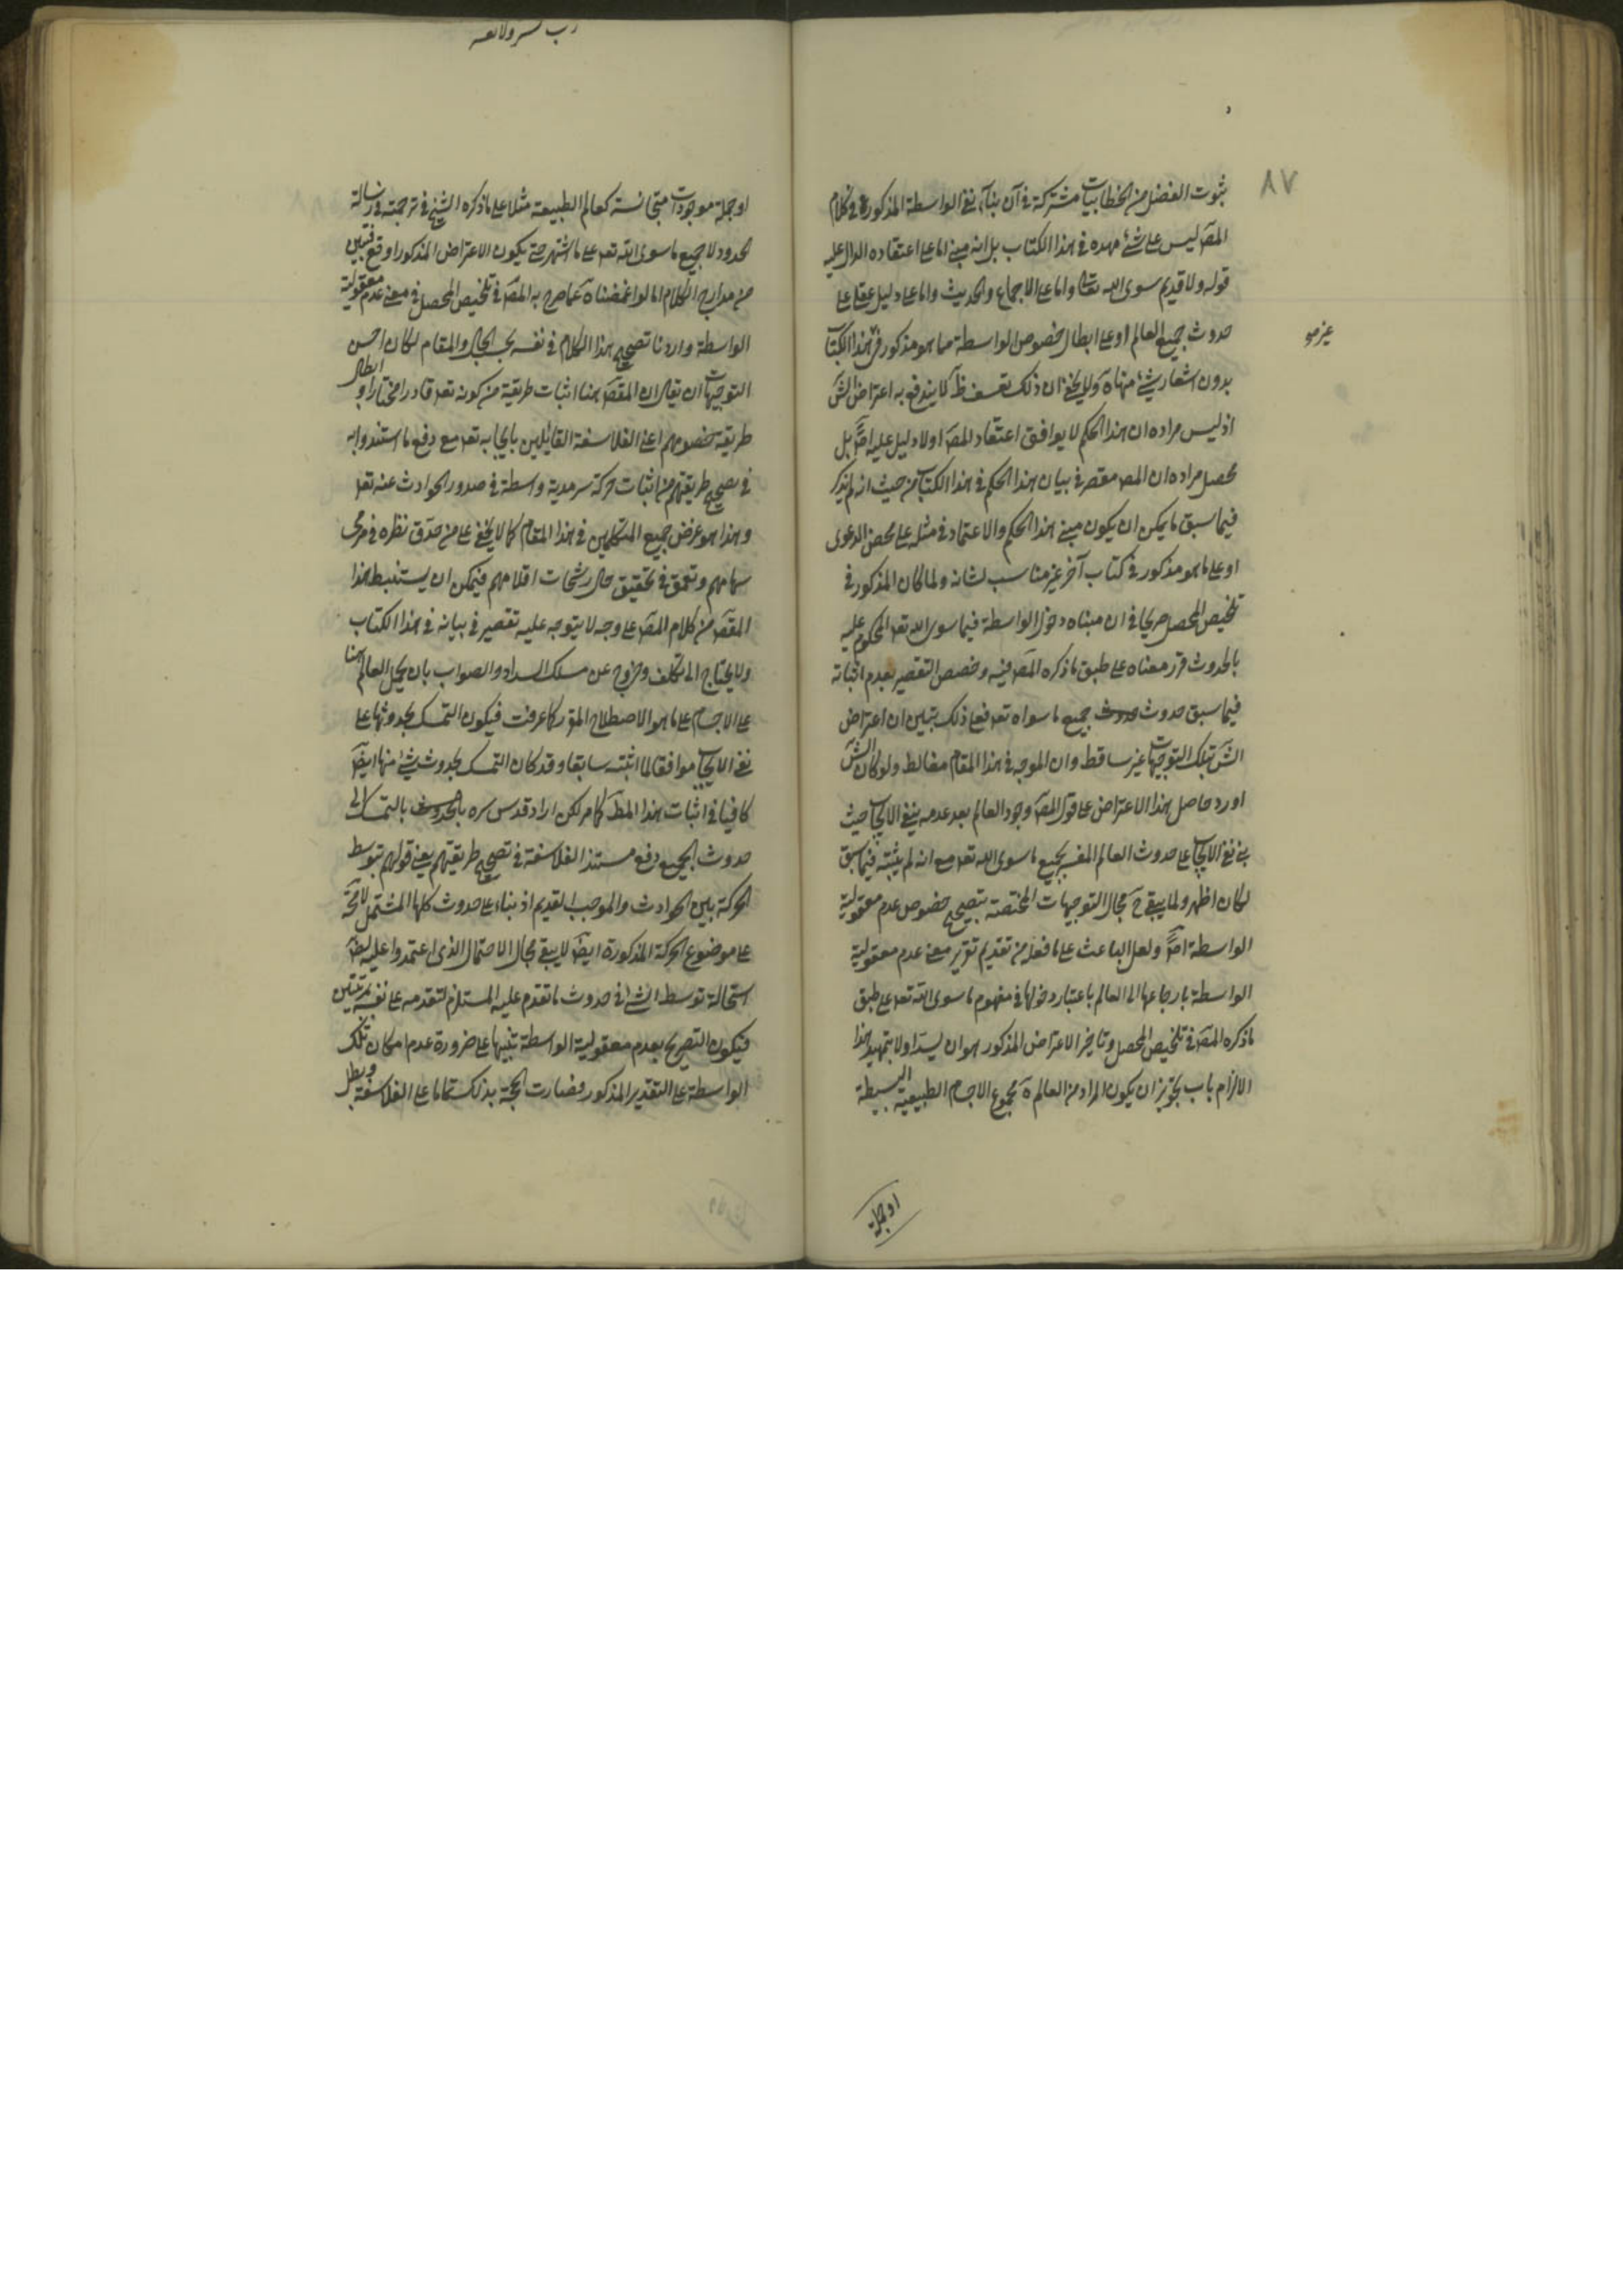 ٨٧
ثبوت الفضل من الخطابيات مشتركة في آن بناء نفي الواسطة المذكورة في كلام
المصَ ليس على شئ مهده في هذا الكتاب بل انه مبني اما على اعتقاده الدال عليه
قوله ولا قديم سوى الله تعالى واما على الاجماع والحديث واما على دليل عقلي على
حدوث جميع العالم او على ابطال خصوص الواسطة مما هو مذكور في هذا الكتاب
غير
بدون اشعار بشئ منها ولا يخفى ان ذلك تعسف ظَ لا يندفع به اعتراض الشَ
اذ ليس مراده ان هذا الحكم لا يوافق اعتقاد المصَ او لا دليل عليه اصً بل
محصل مراده ان المصَ مقصر في بيان هذا الحكم في هذا الكتاب من حيث انه لم يذكر
فيما سبق ما يمكن ان يكون مبني هذا الحكم والاعتماد في مثله على محض الدعوى
او على ما هو مذكور في كتاب آخر غير مناسب لشانه ولما كان المذكور في
تلخيص المحصل صريحا في ان مبناه دخول الواسطة فيما سوى الله تعـ المحكوم عليه
بالحدوث قرر معناه على طبق ما ذكره المصَ فيه وخصص التقصير بعدم اثباته
فيما سبق حدوث حدوث جميع ما سواه تعـ فعلى ذلك تبين ان اعتراض
الشَ بتلك التوجيهات غير ساقط وان الموجه في هذا المقام مغالط ولو كان الشَ
اورد حاصل هذا الاعتراض على قول المصَ وجود العالم بعد عدمه ينفي الايجاب حيث
بنى نفي الايجاب على حدوث العالم المفسر بجميع ما سوى الله تعـ مع انه لم يثبته فيما سبق
لكان اظهر ولما يبقى حَ مجال التوجيهات المختصة بتصحيح خصوص عدم معقولية
الواسطة اصً ولعل الباعث على ما فعله من تقديم تقرير معنى عدم معقولية
الواسطة بارجاعها الى العالم باعتبار دخولها في مفهوم ما سوى الله تعـ على طبق
ما ذكره المصَ في تلخيص المحصل وتاخير الاعتراض المذكور هو ان يسد اولا بتمهيد هذا
الالزام باب تجويز ان يكون المراد من العالم مجموع الاجسام الطبيعية البسيطة
او جملة
او جملة موجودات متجانسة كعالم الطبيعة مثلا على ما ذكره الشيخ في ترجمته في رسالة
الحدود لا جميع ما سوى الله تعـ على ما اشتهر حتى يكون الاعتراض المذكور اوقع
من مدارج الكلام اما لو اغمضنا عما صرح به المصَ في تلخيص المحصل في معنى عدم معقولية
الواسطة واردنا تصحيح هذا الكلام في نفسه بحسب الحال والمقام لكان احسن
التوجيهات ان يقال ان المقصَ هنا اثبات طريقة من كونه تعـ قادرا مختارا وابطال
طريقة خصومهم اعني الفلاسفة القائلين بايجابه تعـ مع دفع ما استندوا به
في تصحيح طريقتهم من اثبات حركة سرمدية واسطة في صدور الحوادث عنه تعـ
وهذا هو غرض جميع المتكلمين في هذا المقام كما لا يخفى على من حدق نظره في مرمى
سهامهم وتعمق في تحقيق حال رشحات اقلامهم فيمكن ان يستنبط هذا
المقصَ من كلام المصَ على وجه لا يتوجه عليه تقصير في بيانه في هذا الكتاب
ولا يحتاج الى تكلف وخروج عن مسلك السداد والصواب بان يحمل العالم هنا
على الاجسام على ما هو الاصطلاح المقرر كما عرفت فيكون التمسك بحدوثها على
نفي الايجاب موافقا لما اثبته سابقا وقد كان التمسك بحدوث شئ منها ايضَ
كافيا في اثبات هذا المطَ كما مر لكن اراد قدس سره بالحدوث بالتمسك الى
حدوث الجميع دفع مستند الفلاسفة في تصحيح طريقتهم يعني قولهم بتوسط
الحركة بين الحوادث والموجب القديم اذ بناء على حدوث كلها المشتمل لا محَة
على موضوع الحركة المذكورة ايضَ لا يبقى مجال الاحتمال الذي اعتمدوا عليه
استحالة توسط الشئ في حدوث ما تقدم عليه المستلزم لتقدمه على نفسه بمرتبتين
فيكون التصريح بعدم معقولية الواسطة تنبيها على ضرورة عدم امكان تلك
الواسطة على التقدير المذكور فصارت الحجة بذلك تماما على الفلاسفة وبطل